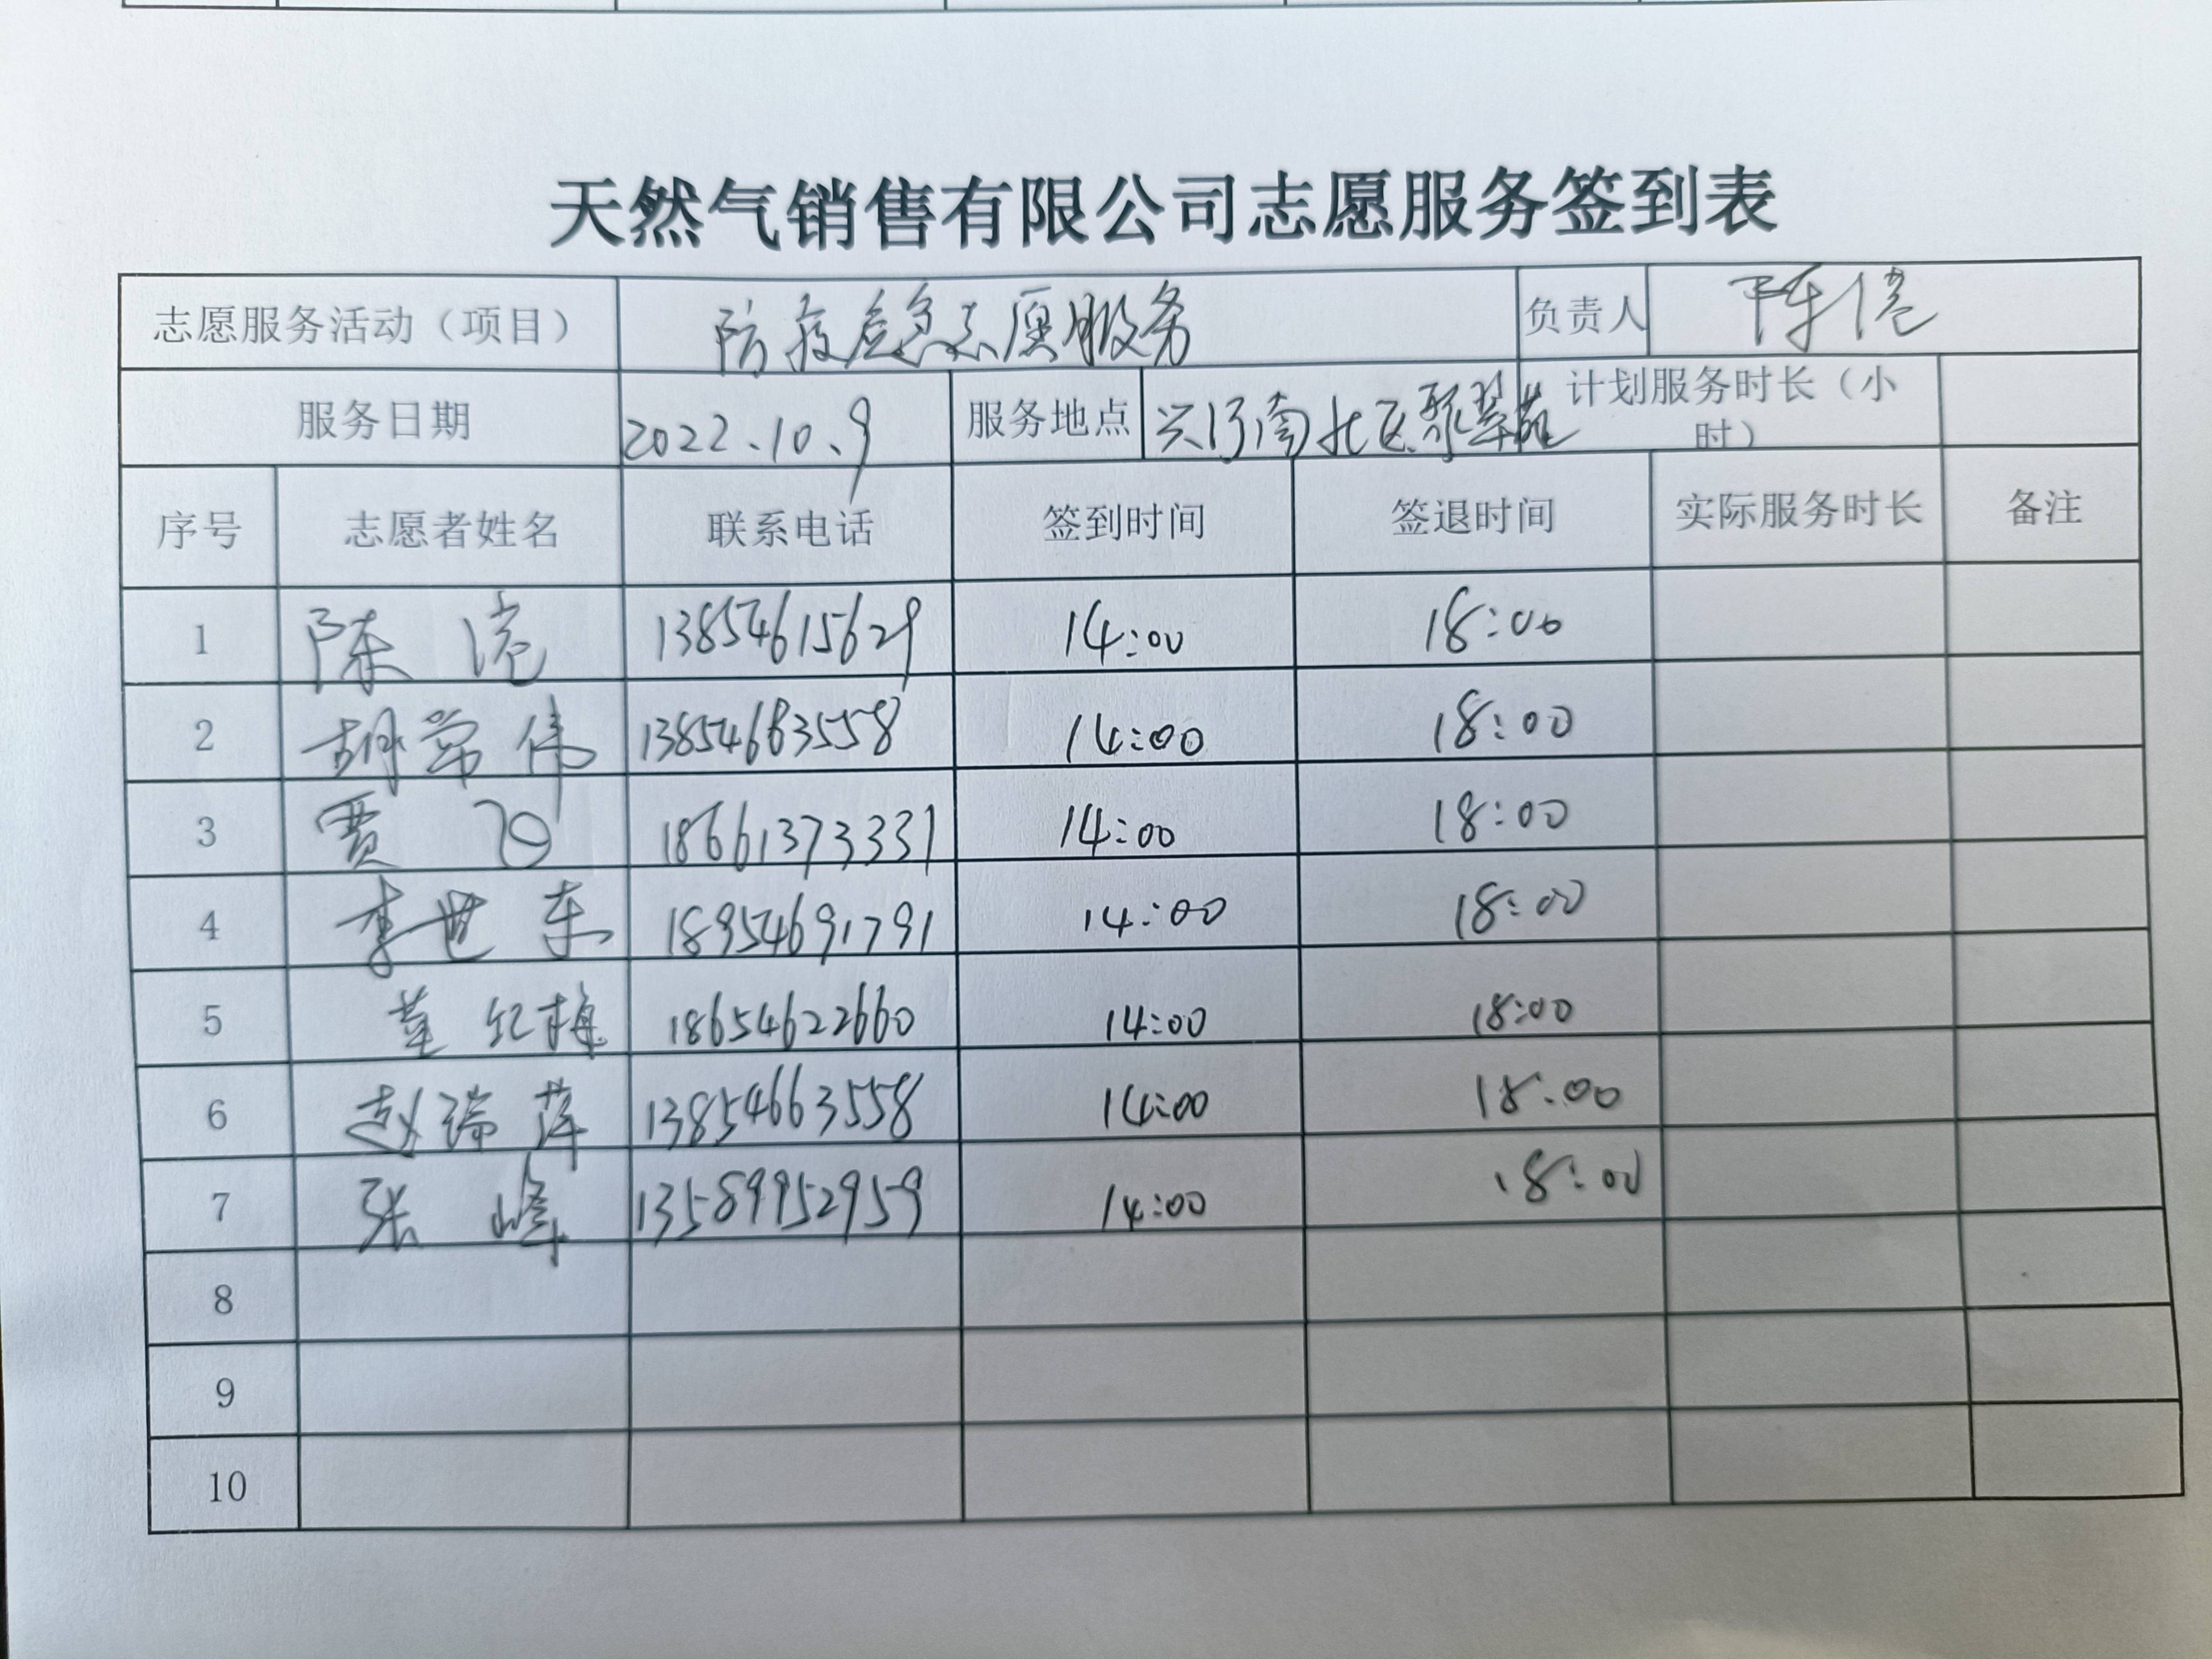 天然气销售有限公司志愿服务签到表
志愿服务活动（项目） 防疫应急志愿服务 负责人 陈港
服务日期 2022.10.9 服务地点 兴河南北区聚翠苑 计划服务时长（小
时）
序号 志愿者姓名 联系电话 签到时间 签退时间 实际服务时长 备注
1 陈港 13854615629 14:00 18:00
2 胡常伟 13854663558 14:00 18:00
3 贾 18661373331 14:00 18:00
4 李世东 18954691791 14:00 18:00
5 董红梅 18654622660 14:00 18:00
6 赵瑞萍 13854663558 14:00 18:00
7 张峰 13589952959 14:00 18:00
8
9
10